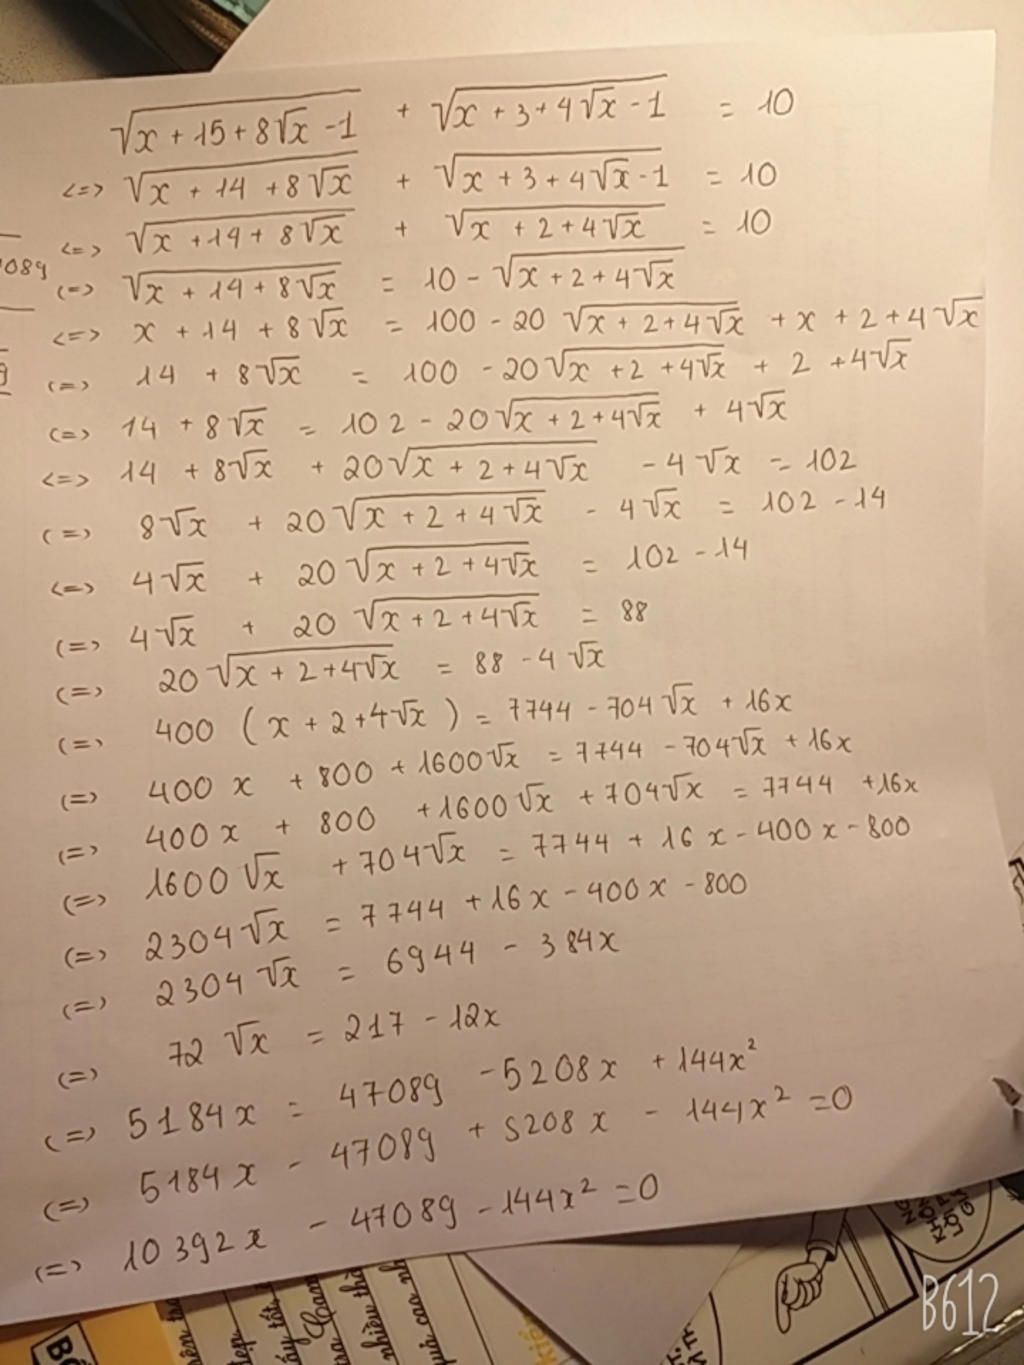 √(x + 15 + 8√x - 1) + √(x + 3 + 4√x - 1) = 10
<=> √(x + 14 + 8√x) + √(x + 3 + 4√x - 1) = 10
<=> √(x + 14 + 8√x) + √(x + 2 + 4√x) = 10
(=> √(x + 14 + 8√x) = 10 - √(x + 2 + 4√x)
<=> x + 14 + 8√x = 100 - 20√(x + 2 + 4√x) + x + 2 + 4√x
(=> 14 + 8√x = 100 - 20√(x + 2 + 4√x) + 2 + 4√x
<=> 14 + 8√x = 102 - 20√(x + 2 + 4√x) + 4√x
<=> 14 + 8√x + 20√(x + 2 + 4√x) - 4√x = 102
(=) 8√x + 20√(x + 2 + 4√x) - 4√x = 102 - 14
<=> 4√x + 20√(x + 2 + 4√x) = 102 - 14
(=> 4√x + 20√(x + 2 + 4√x) = 88
(=> 20√(x + 2 + 4√x) = 88 - 4√x
(=> 400 (x + 2 + 4√x) = 7744 - 704√x + 16x
(=> 400x + 800 + 1600√x = 7744 - 704√x + 16x
(=> 400x + 800 + 1600√x + 704√x = 7744 + 16x
(=> 1600√x + 704√x = 7744 + 16x - 400x - 800
(=> 2304√x = 7744 + 16x - 400x - 800
(=> 2304√x = 6944 - 384x
(=> 72√x = 217 - 12x
(=> 5184x = 47089 - 5208x + 144x²
(=> 5184x - 47089 + 5208x - 144x² = 0
(=> 10392x - 47089 - 144x² = 0
089
B612